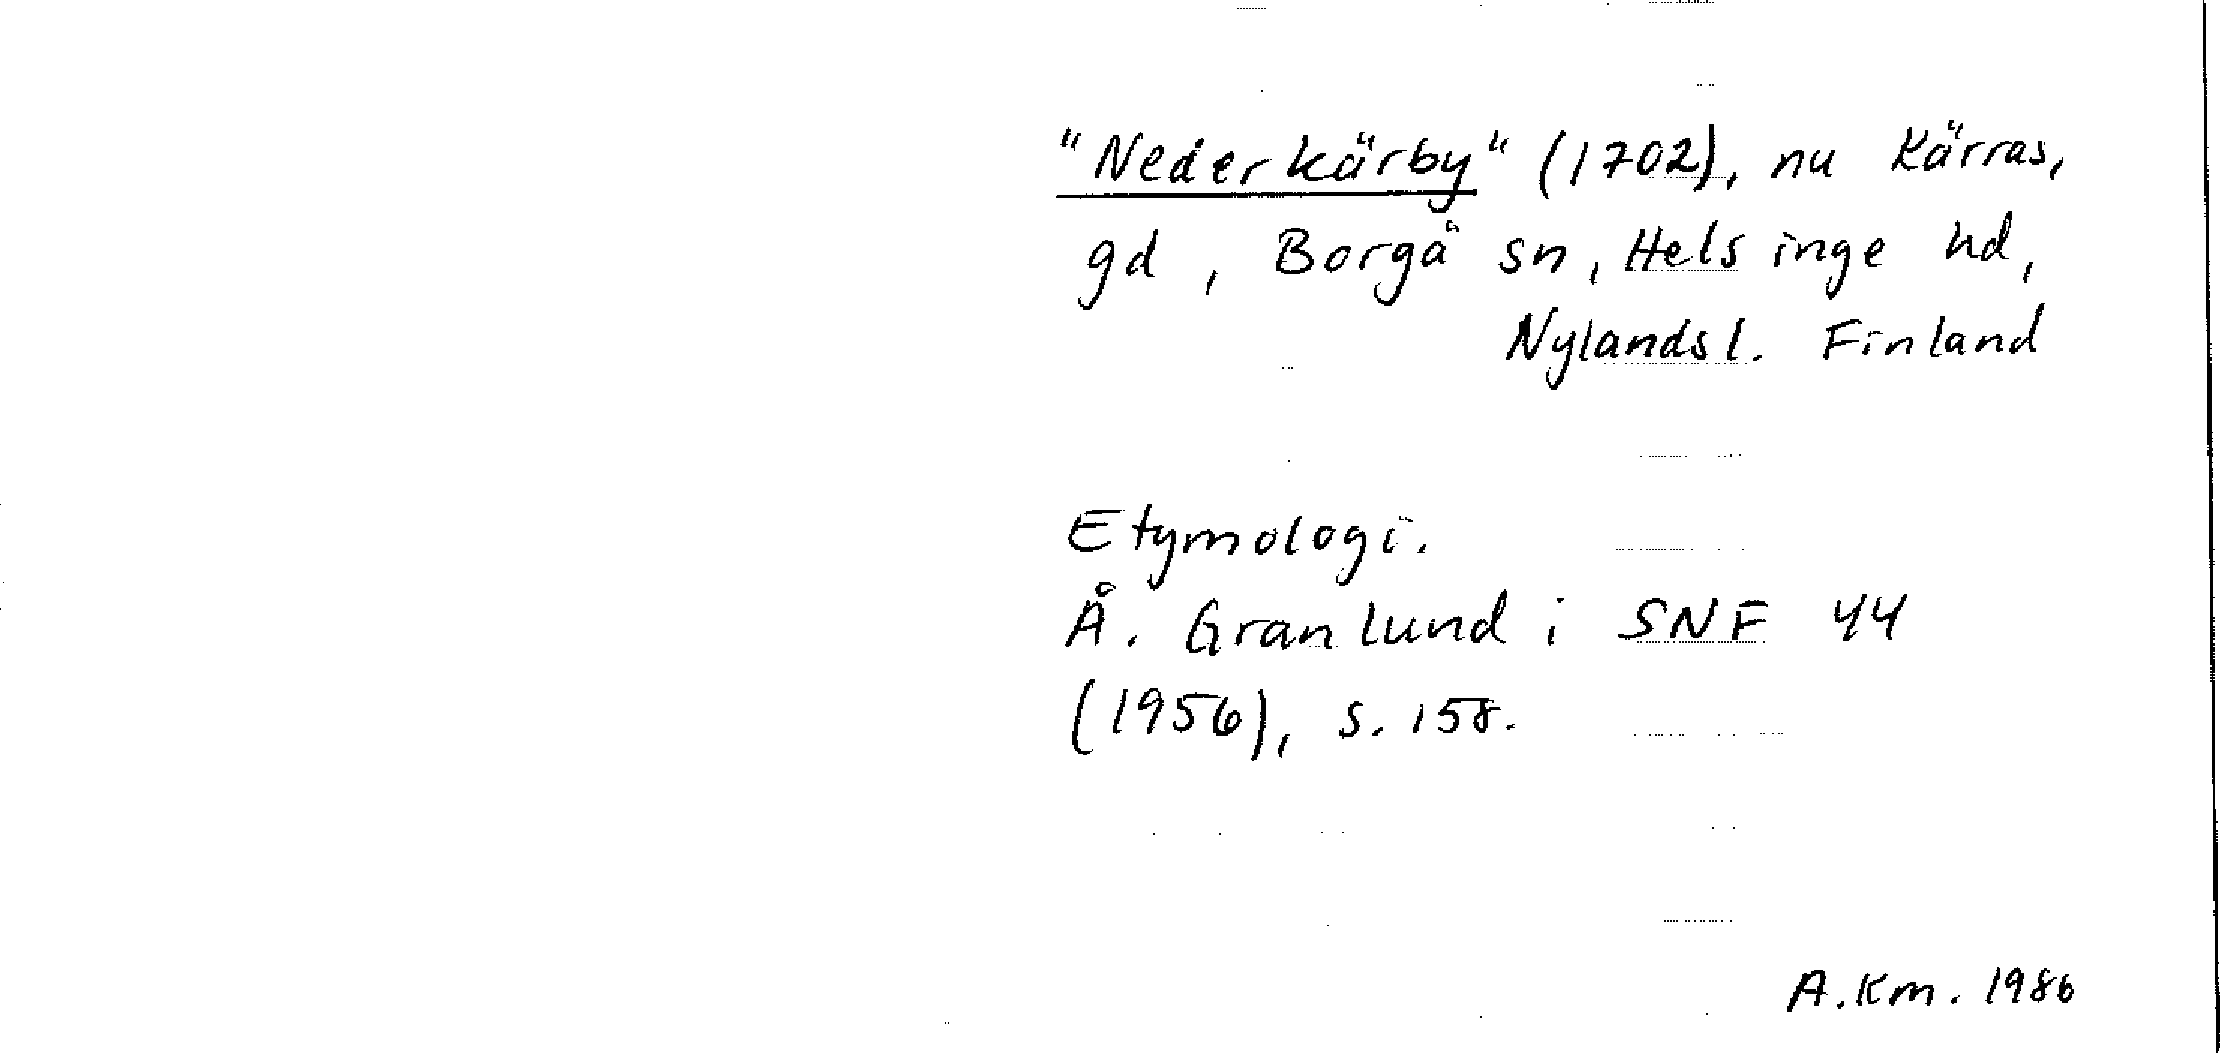 "Nederkärby" (1702), nu Kärras,
gd, Borgå sn, Helsinge hd,
Nylands l. Finland
Etymologi.
Å. Granlund i SNF 44
(1956), s. 158.
A.Km. 1986